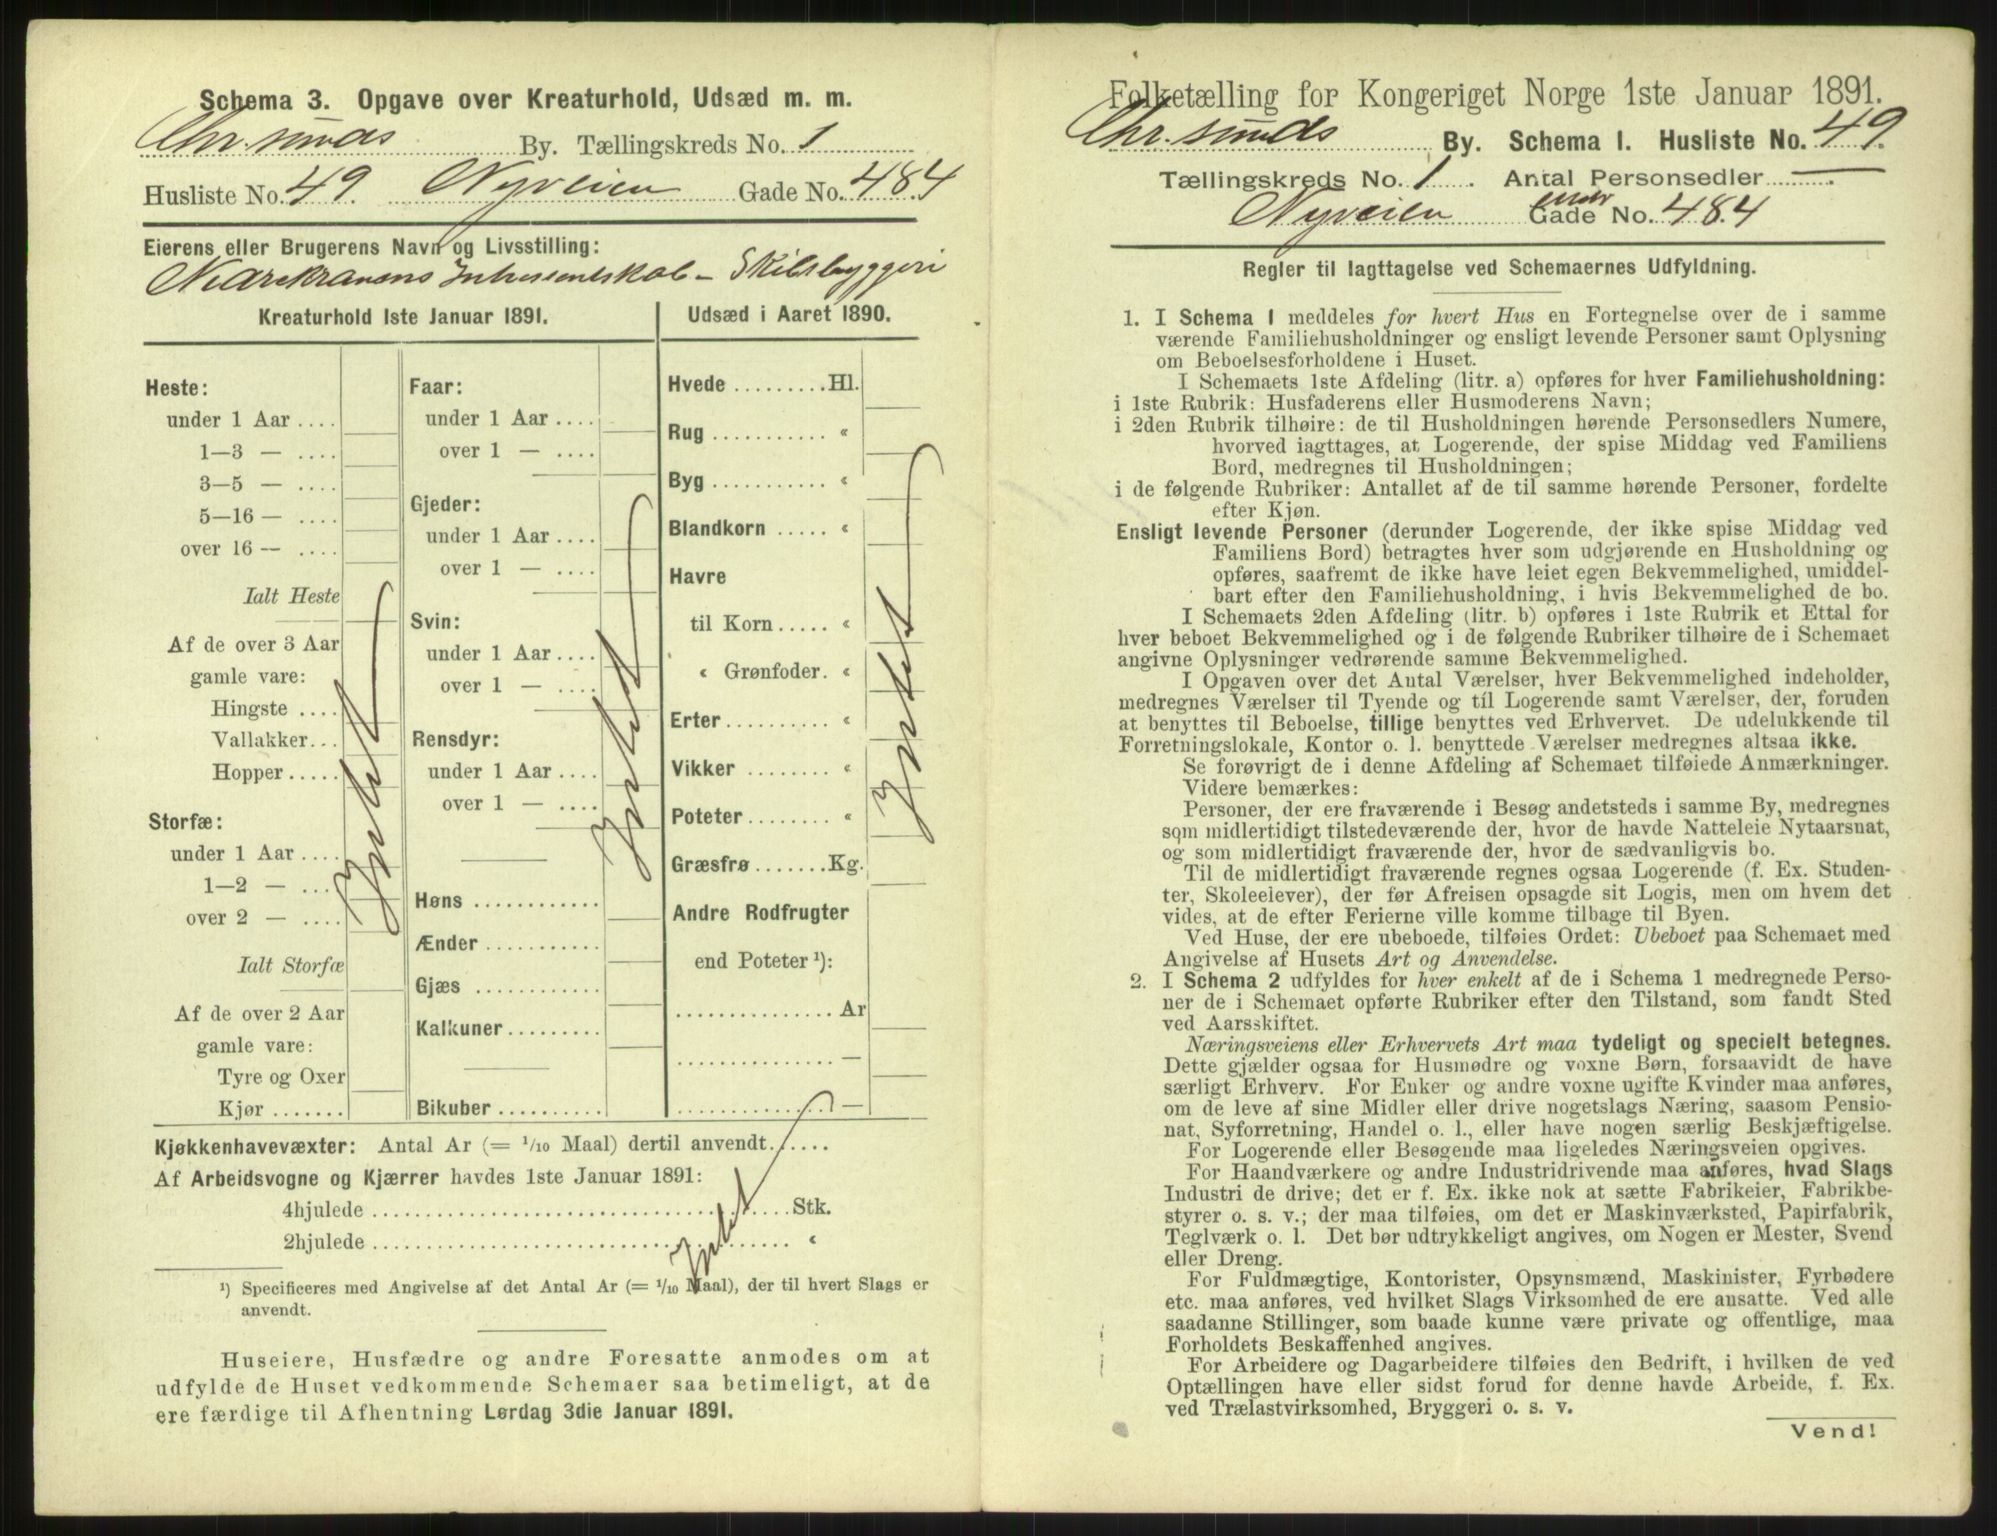 Schema 3. Opgave over Kreaturhold, Udsæd m. m.
Chr.sunds By. Tællingskreds No. 1
Husliste No. 49. Nyveien Gade No. 484
Eierens eller Brugerens Navn og Livsstilling:
Interessentskab – Skibsbyggeri
Kreaturhold 1ste Januar 1891.
Heste:
under 1 Aar ....
1—3 — ....
3—5 — ....
5—16 — ....
over 16 — ....
Ialt Heste
Af de over 3 Aar
gamle vare:
Hingste ....
Vallakker...
Hopper.....
Storfæ:
under 1 Aar ....
1—2 — ....
over 2 — ....
Ialt Storfæ
Af de over 2 Aar
gamle vare:
Tyre og Oxer
Kjør.......
Intet
Faar:
under 1 Aar....
over 1 — ....
Gjeder:
under 1 Aar....
over 1 — ....
Svin:
under 1 Aar....
over 1 — ....
Rensdyr:
under 1 Aar....
over 1 — ....
Høns ............
Ænder...........
Gjæs ............
Kalkuner.........
Bikuber ..........
Intet
Udsæd i Aaret 1890.
Hvede .........Hl.
Rug ........... «
Byg ........... «
Blandkorn ..... «
Havre
til Korn ..... «
« Grønfoder. «
Erter ......... «
Vikker ........ «
Poteter ........ «
Græsfrø .......Kg.
Andre Rodfrugter
end Poteter ¹):
............... Ar
............... —
............... —
Intet
Kjøkkenhavevæxter: Antal Ar (= 1/10 Maal) dertil anvendt......
Af Arbeidsvogne og Kjærrer havdes 1ste Januar 1891:
4hjulede ........................................ Stk.
2hjulede ........................................ «
Intet
¹) Specificeres med Angivelse af det Antal Ar (= 1/10 Maal), der til hvert Slags er
anvendt.
Huseiere, Husfædre og andre Foresatte anmodes om at
udfylde de Huset vedkommende Schemaer saa betimeligt, at de
ere færdige til Afhentning Lørdag 3die Januar 1891.
Folketælling for Kongeriget Norge 1ste Januar 1891.
Chr.sunds By. Schema 1. Husliste No. 49.
Tællingskreds No. 1. Antal Personsedler —.
Nyveien Gade No. 484
Regler til Iagttagelse ved Schemaernes Udfyldning.
1. I Schema 1 meddeles for hvert Hus en Fortegnelse over de i samme
værende Familiehusholdninger og ensligt levende Personer samt Oplysning
om Beboelsesforholdene i Huset.
I Schemaets 1ste Afdeling (litr. a) opføres for hver Familiehusholdning:
i 1ste Rubrik: Husfaderens eller Husmoderens Navn;
i 2den Rubrik tilhøire: de til Husholdningen hørende Personsedlers Numere,
hvorved iagttages, at Logerende, der spise Middag ved Familiens
Bord, medregnes til Husholdningen;
i de følgende Rubriker: Antallet af de til samme hørende Personer, fordelte
efter Kjøn.
Ensligt levende Personer (derunder Logerende, der ikke spise Middag ved
Familiens Bord) betragtes hver som udgjørende en Husholdning og
opføres, saafremt de ikke have leiet egen Bekvemmelighed, umiddel-
bart efter den Familiehusholdning, i hvis Bekvemmelighed de bo.
I Schemaets 2den Afdeling (litr. b) opføres i 1ste Rubrik et Ettal for
hver beboet Bekvemmelighed og i de følgende Rubriker tilhøire de i Schemaet
angivne Oplysninger vedrørende samme Bekvemmelighed.
I Opgaven over det Antal Værelser, hver Bekvemmelighed indeholder,
medregnes Værelser til Tyende og til Logerende samt Værelser, der, foruden
at benyttes til Beboelse, tillige benyttes ved Erhvervet. De udelukkende til
Forretningslokale, Kontor o. l. benyttede Værelser medregnes altsaa ikke.
Se forøvrigt de i denne Afdeling af Schemaet tilføiede Anmærkninger.
Videre bemærkes:
Personer, der ere fraværende i Besøg andetsteds i samme By, medregnes
som midlertidigt tilstedeværende der, hvor de havde Natteleie Nytaarsnat,
og som midlertidigt fraværende der, hvor de sædvanligvis bo.
Til de midlertidigt fraværende regnes ogsaa Logerende (f. Ex. Studen-
ter, Skoleelever), der før Afreisen opsagde sit Logis, men om hvem det
vides, at de efter Ferierne ville komme tilbage til Byen.
Ved Huse, der ere ubeboede, tilføies Ordet: Ubeboet paa Schemaet med
Angivelse af Husets Art og Anvendelse.
2. I Schema 2 udfyldes for hver enkelt af de i Schema 1 medregnede Perso-
ner de i Schemaet opførte Rubriker efter den Tilstand, som fandt Sted
ved Aarsskiftet.
Næringsveiens eller Erhvervets Art maa tydeligt og specielt betegnes.
Dette gjælder ogsaa for Husmødre og voxne Børn, forsaavidt de have
særligt Erhverv. For Enker og andre voxne ugifte Kvinder maa anføres,
om de leve af sine Midler eller drive nogetslags Næring, saasom Pensio-
nat, Syforretning, Handel o. l., eller have nogen særlig Beskjæftigelse.
For Logerende eller Besøgende maa ligeledes Næringsveien opgives.
For Haandværkere og andre Industridrivende maa anføres, hvad Slags
Industri de drive; det er f. Ex. ikke nok at sætte Fabrikeier, Fabrikbe-
styrer o. s. v.; der maa tilføies, om det er Maskinværksted, Papirfabrik,
Teglværk o. l. Det bør udtrykkeligt angives, om Nogen er Mester, Svend
eller Dreng.
For Fuldmægtige, Kontorister, Opsynsmænd, Maskinister, Fyrbødere
etc. maa anføres, ved hvilket Slags Virksomhed de ere ansatte. Ved alle
saadanne Stillinger, som baade kunne være private og offentlige, maa
Forholdets Beskaffenhed angives.
For Arbeidere og Dagarbeidere tilføies den Bedrift, i hvilken de ved
Optællingen have eller sidst forud for denne havde Arbeide, f. Ex.
ved Trælastvirksomhed, Bryggeri o. s. v.
Vend!